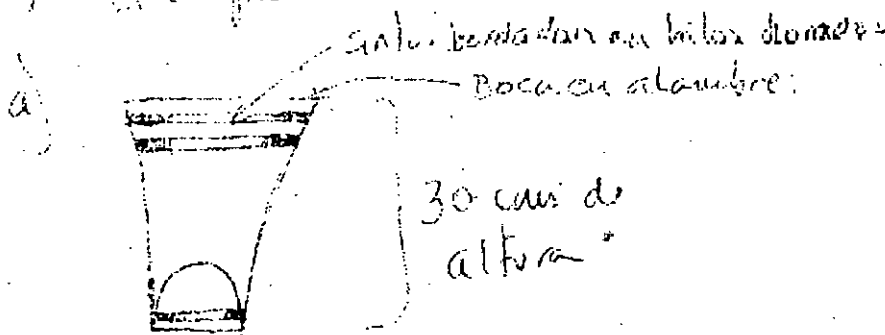 a)
bordadas en hilos dorados
Boca en alambre.
30 cms de
altura